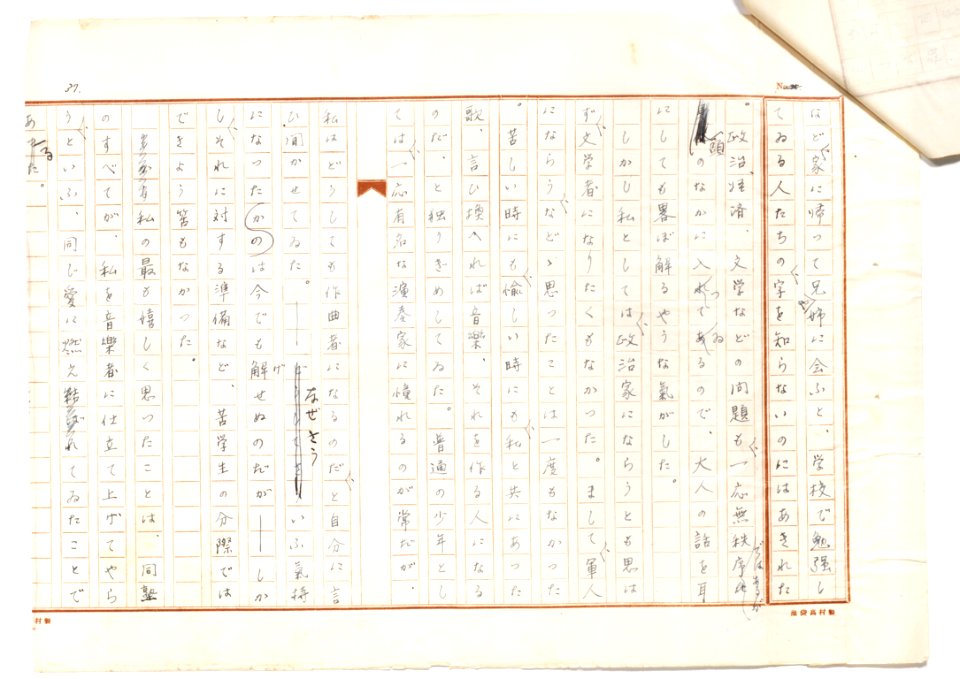 37.
No.
はど家に帰って兄姉に会ふと、学校で勉強し
てゐる人たちの字を知らないのにはあきれた
。政治、経済、文学などの問題も一応無秩序
ではあるが
頭のなかに入つてゐるので、大人の話を耳
にしても畧ば解るやうな氣がした。
しかし私としては政治家にならうとも思は
ず文学者になりたくもなかった。まして軍人
にならうなどゝ思ったことは一度もなかった
。苦しい時にも愉しい時にも私と共にあった
歌、言ひ換へれば音樂、それを作る人になる
のだ、と独りぎめしてゐた。普通の少年とし
ては一応有名な演奏家に憧れるのが常だが、
私はどうしても作曲者になるのだと自分に言
ひ聞かせてゐた。——なぜさういふ氣持
になったかのは今でも解げせぬのだが——しか
しそれに対する準備など、苦学生の分際では
できよう筈もなかった。
私の最も嬉しく思ったことは、同塾
のすべてが、私を音樂者に仕立て上げてやら
うといふ、同じ愛に燃えてゐたことで
ある。
池袋高村製
村製